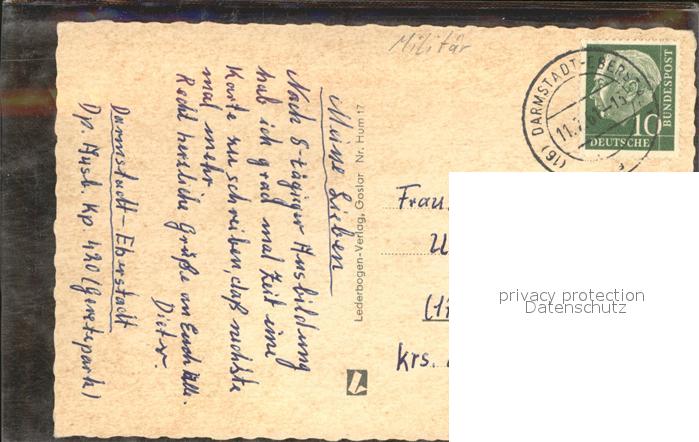 Militär
Meine Lieben
Nach 8-tägiger Ausbildung
hab ich grad mal Zeit eine
Karte zu schreiben, daß nächste
mal mehr.
Recht herzliche Grüße an Euch Alle.
Dieter.
Darmstadt-Eberstadt
Dp. Ausb. Kp 420 (Gerätepark)
Lederbogen-Verlag, Goslar Nr. Hum 17
(16) DARMSTADT-EBERS
11.
10
DEUTSCHE
BUNDESPOST
Frau
krs.
privacy protection
Datenschutz